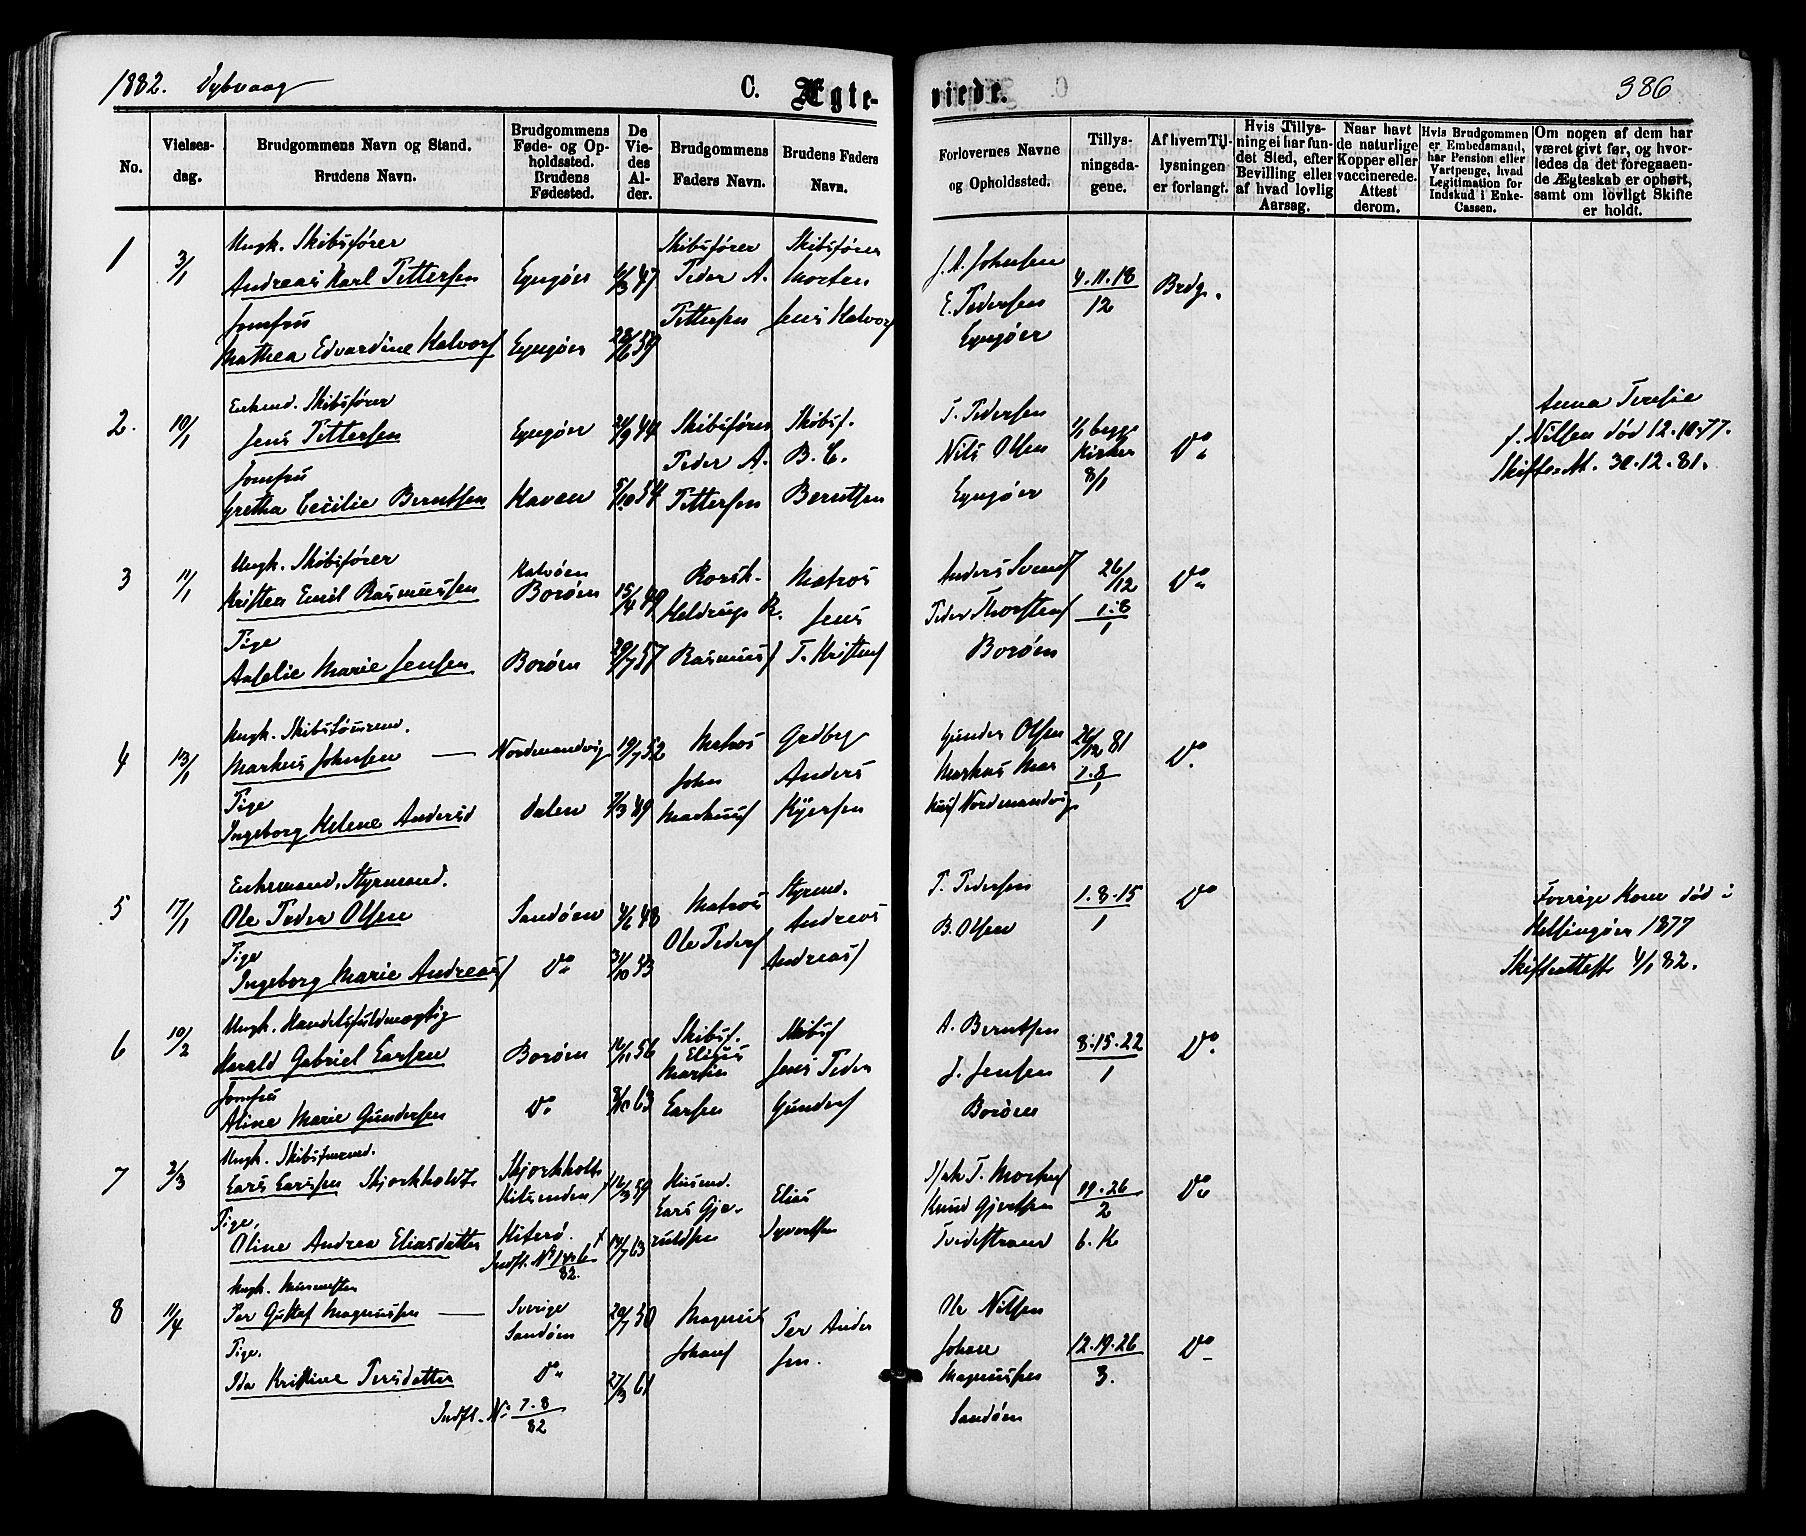 1882. Dybvaag
C. Ægte-
viede.
386
No.
Vielses-
dag.
Brudgommens Navn og Stand.
Brudens Navn.
Brudgommens
Føde- og Op-
holdssted.
Brudens
Fødested.
De
Vie-
des
Al-
der.
Brudgommens
Faders Navn.
Brudens Faders
Navn.
Forlovernes Navne
og Opholdssted.
Tillys-
ningsda-
gene.
Af hvem Til-
lysningen
er forlangt.
Hvis Tillys-
ning ei har fun-
det Sted, efter
Bevilling eller
af hvad lovlig
Aarsag.
Naar havt
de naturlige
Kopper eller
vaccinerede.
Attest
derom.
Hvis Brudgommen
er Embedsmand,
har Pension eller
Vartpenge, hvad
Legitimation for
Indskud i Enke-
Cassen.
Om nogen af dem har
været givt før, og hvor-
ledes da det foregaaen-
de Ægteskab er ophørt,
samt om lovligt Skifte
er holdt.
1 3/1 Ungk. Skibsfører
Andreas Karl Pettersen Lyngøer 4/3 47
Jomfru
Mathea Edvardine Halvors Lyngøer 28/6 59
Skibsfører
Peder A.
Pettersen
Skibsfører
Morten
Jens Halvors
J. A. Johnsen
E. Pedersen
Lyngøer
4.11.18
12
Brdg.
2. 10/1 Enkmd. Skibsfører
Jens Pettersen Lyngøer 24/9 44
Jomfru
Gretha Cecilie Berntsen Haven 5/10 54
Skibsfører
Peder A.
Pettersen
Skibsf.
B. C.
Berntsen
T. Pedersen
Nils Olsen
Lyngøer
1/1 begge
Kirker
8/1
Do
Anna Teresie
f. Nilsen død 12.10.77.
Skifte At. 30.12.81.
3 11/1 Ungk. Skibsfører
Kristen Emil Rasmussen
Kalvøen
Borøen 15/4 49
Pige
Aaselie Marie Jensen Borøen 29/7 57
Heldrup R.
Rasmuss
Matros
Jens
T. Kristens
Anders Svends
Peder Thorstens
Borøen
26/12
1.8
1
Do
4 13/1 Ungk.
Markus Johnsen Nordmandvig 19/7 52
Pige
Ingeborg Helene Andersd Dalen 7/3 49
Matros
John
Markuss
Grdbr
Anders
Kjersen
Gunder Olsen
Markus Mar
kuss Nordmandvig
26/12 81
1.8
1
Do
5 17/1 Enkemand. Styrmand.
Ole Peder Olsen Sandøen 4/6 48
Pige
Ingeborg Marie Andreass Do 31/10 53
Matros
Ole Peders
Styrmd.
Andreas
Andreass
T. Pedersen
B. Olsen
1.8.15
1
Do
Forrige Kone død i
Helsingøer 1877
Skifteattest 4/1 82.
6 10/2 Ungk. Handelsfuldmægtig
Harald Gabriel Larsen Borøen 16/11 56
Jomfru
Aline Marie Gundersen Do 9/10 63
Skibsf.
Elisius
Martin
Larsen
Skibsf
Jens Peder
Gunders
A. Berntsen
J. Jensen
Borøen
8.15.22
1
Do
7 2/3 Ungk. Skibstmrmd.
Lars Larssen Skjorkholdt
Skjorkholt 16/3 59
Pige.
Oline Andrea Eliasdatter Hiterø. 14/7 63
Indfl. No 1 & 6
82.
Husmd.
Lars Gje-
ruldsen
Elias
Syvertsen
T. Mortens
Knud Gjertsen
Tvedestrand
19.26
2
b. K
Do
8 11/4 Ungk.
Per Gustaf Magnussen
Sverige
Sandøen 20/7 50
Pige.
Ida Kristine Persdatter Do 27/3 61
Indfl. No 7.8
82
Magnus
Johans
Per Ander
sen.
Ole Nilsen
Johan
Magnussen
Sandøen
12.19.26
3.
Do